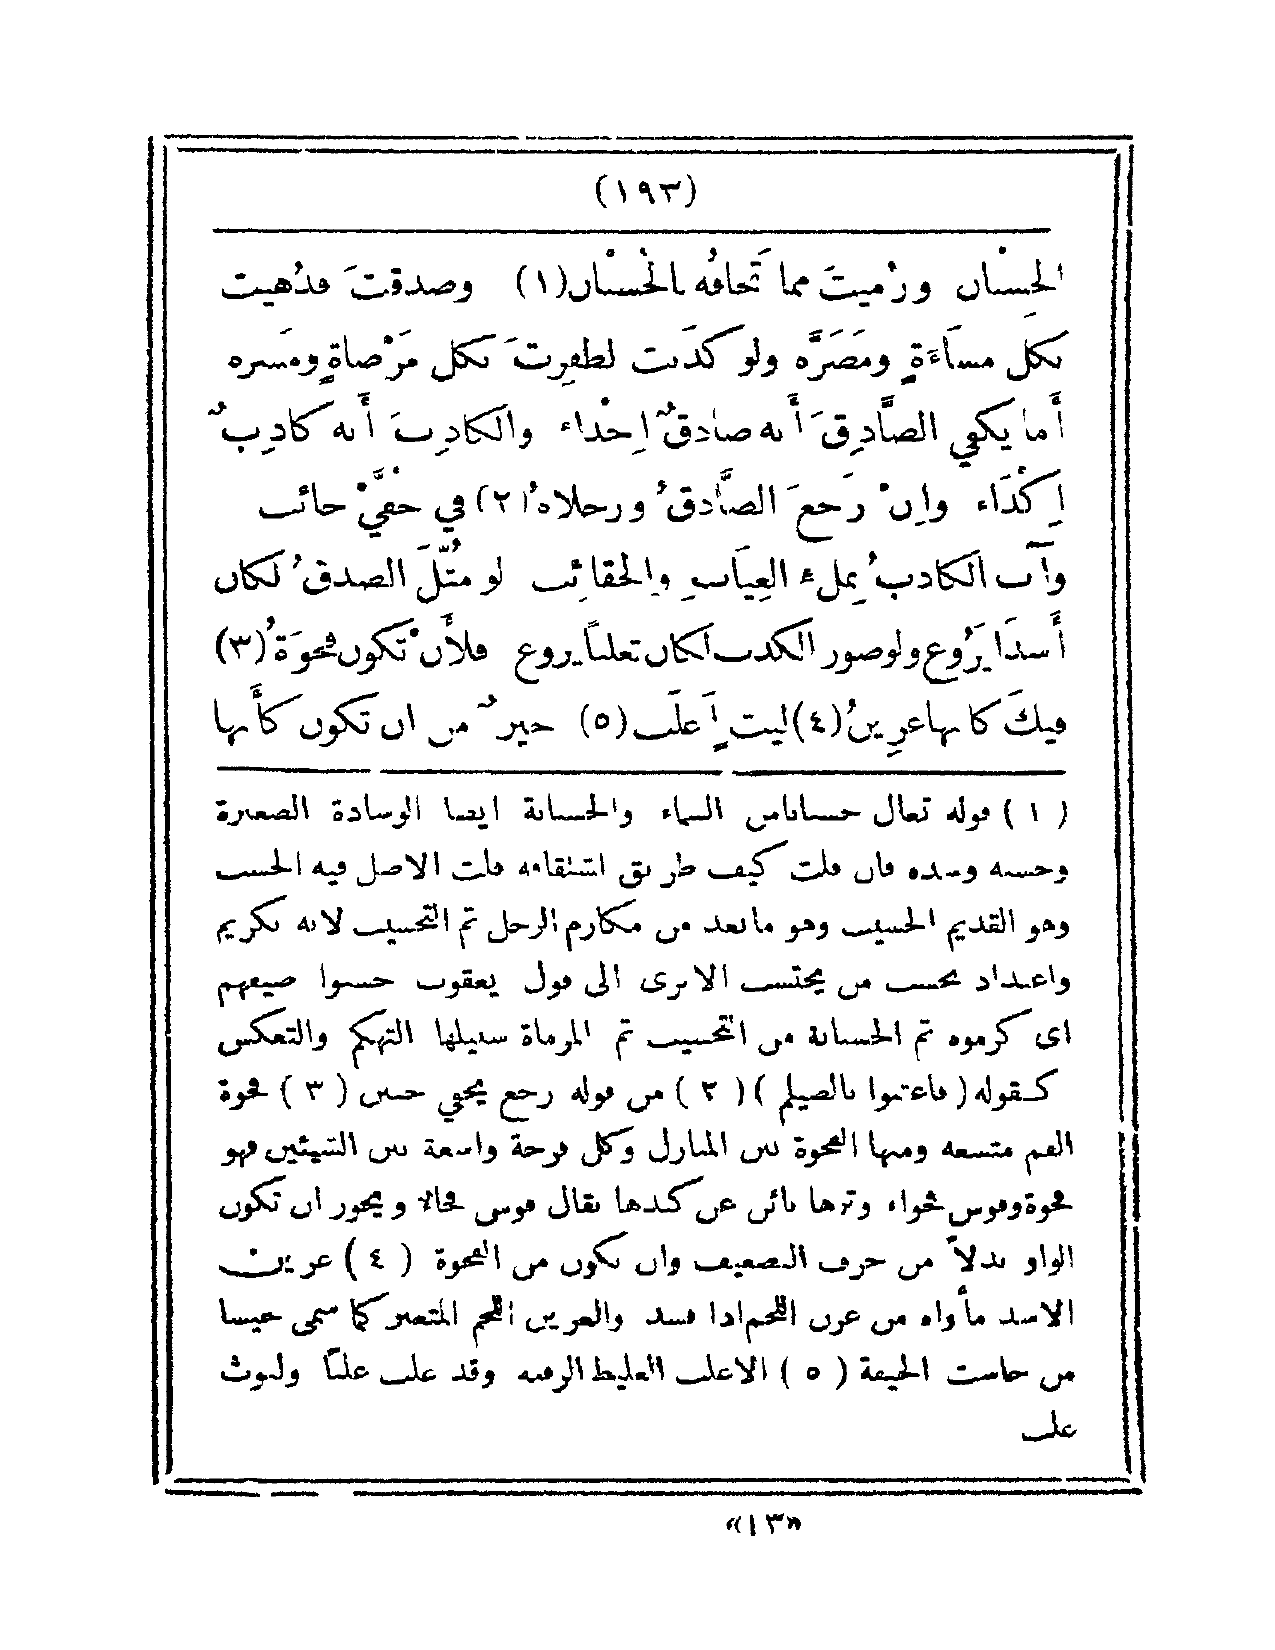 (١٩٣)
الحسان ورُميتَ مما تَخافُه بالحُسْبان(١) وصدقتَ فدُهيت
بكل مساَءَةٍ ومَضَرَّه ولو كَذَبت لظفِرتَ بكل مَرْضاةٍ ومَسَره
أَما يكفي الصَّادِقَ أَنه صادقٌ إِخْداء والكاذِبَ أَنه كاذِبٌ
إِكْدَاء وإِنْ رَجَع الصَّادقُ ورجلاهُ(٢) في خفَّيْ خائب
وآب الكاذبُ بِملء العِيَابِ والحقائِب لو مُثِّلَ الصدقُ لكان
أَسدَاً يَرُوع ولو صور الكذب لكان ثعلباً يروغ فلأَنْ تكون فجْوَةُ(٣)
فيكَ كأنها عرِينُ(٤) ليثٍ أَغلَب(٥) خيرٌ من ان تكون كأَنها
(١) قوله تعالى حسبانا من السماء والحسبانة ايضا الوسادة الصغيرة
وحسبه وسده فان قلت كيف طريق اشتقاقه قلت الاصل فيه الحسب
وهو القديم الحسيب وهو ما يعد من مكارم الرجل ثم التحسيب لانه تكريم
واعتداد بحسب من يحتسب الا يرى الى قول يعقوب حسبوا ضيفهم
اى كرموه ثم الحسبانة من التحسيب ثم المرماة سبيلها التهكم والتعكس
كقوله (فاعتبوا بالصيلم) (٢) من قوله رجع بخفي حنين (٣) فجوة
الفم متسعه ومنها الفجوة بين المنازل وكل فرجة واسعة بين الشيئين فهو
فجوة وقوس فجواء وترها بائن عن كبدها يقال قوس فجاء ويجوز ان تكون
الواو بدلاً من حرف التضعيف وان يكون من الفجوة (٤) عرين
الاسد مأواه من عرن اللحم اذا فسد والعرين اللحم المتغير كما سمى خيسا
من خاست الجيفة (٥) الاغلب الغليظ الرقبه وقد غلب غلباً وليوث
غلب
«١٣»